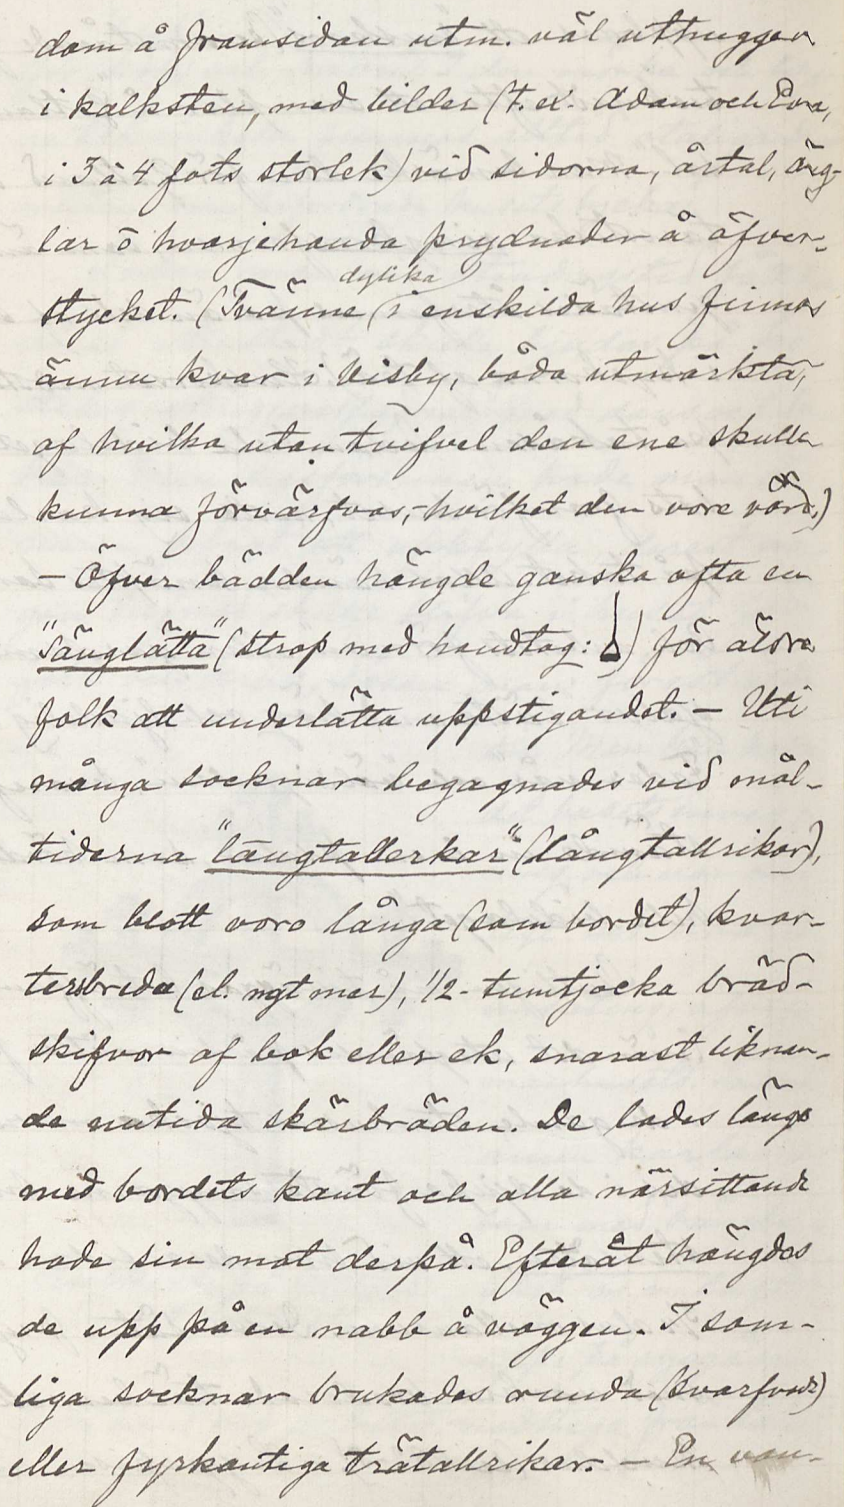 dom å framsidan utm. väl uthuggen
i kalksten, med bilder (t. ex. Adam och Eva,
i 3 à 4 fots storlek) vid sidorna, årtal, äng-
lar o hvarjehanda prydnader å öfver-
stycket. (Tvänne dylika i enskilda hus finnas
ännu kvar i Visby, båda utmärkta,
af hvilka utan tvifvel den ene skulle
kunna förvärfvas, - hvilket den vore värd.)
– Öfver bädden hängde ganska ofta en
"Sänglätta" (strop med handtag: ) för äldre
folk att underlätta uppstigandet. – Uti
många socknar begagnades vid mål-
tiderna "langtallerkar" (långtallrikar),
som blott voro långa (som bordet), kvar-
tersbreda (el. ngt mer), 1/2-tumtjocka bräd-
skifvor af bok eller ek, snarast liknan-
de nutida skärbräden. De lades längs
med bordets kant och alla närsittande
hade sin mat derpå. Efteråt hängdes
de upp på en nabb å väggen. I som-
liga socknar brukades runda (svarfvade)
eller fyrkantiga trätallrikar. – En van-